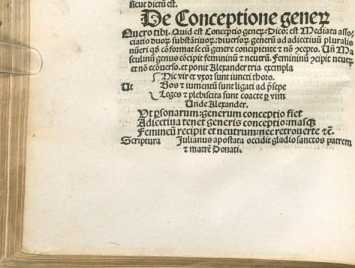 sicut dictũ est.
De Conceptione generꝝ
Quero tibi. Quid est Conceptio generꝝ. Dico: est Mediata asso/
ciatio duorꝝ substãtiuorꝝ diuersorꝝ generũ ad adiectiuũ pluralis
nũeri
sculinũ genus cõcipit femininũ ⁊ neutrũ. Femininũ ⁊cipit neutrꝝ
et nõ ecõuerso. et ponit Alexander tria exempla
Hic vir et vxor sunt iuncti thoro.
Ut Bos ⁊ iumentũ sunt ligati ad p̃sepe
Leges ⁊ plebiscita sunt coacte ꝑ vim
Unde Alexander.
Ut ꝑsonarum: generum conceptio fiet
Adiectiua tenet generis conceptio: masꝗ
Femineũ recipit et neutrum: nec retrouerte ⁊c̃.
Scriptura Julianus apostata occidit gladio sanctos patrem
⁊ matrẽ Donati.